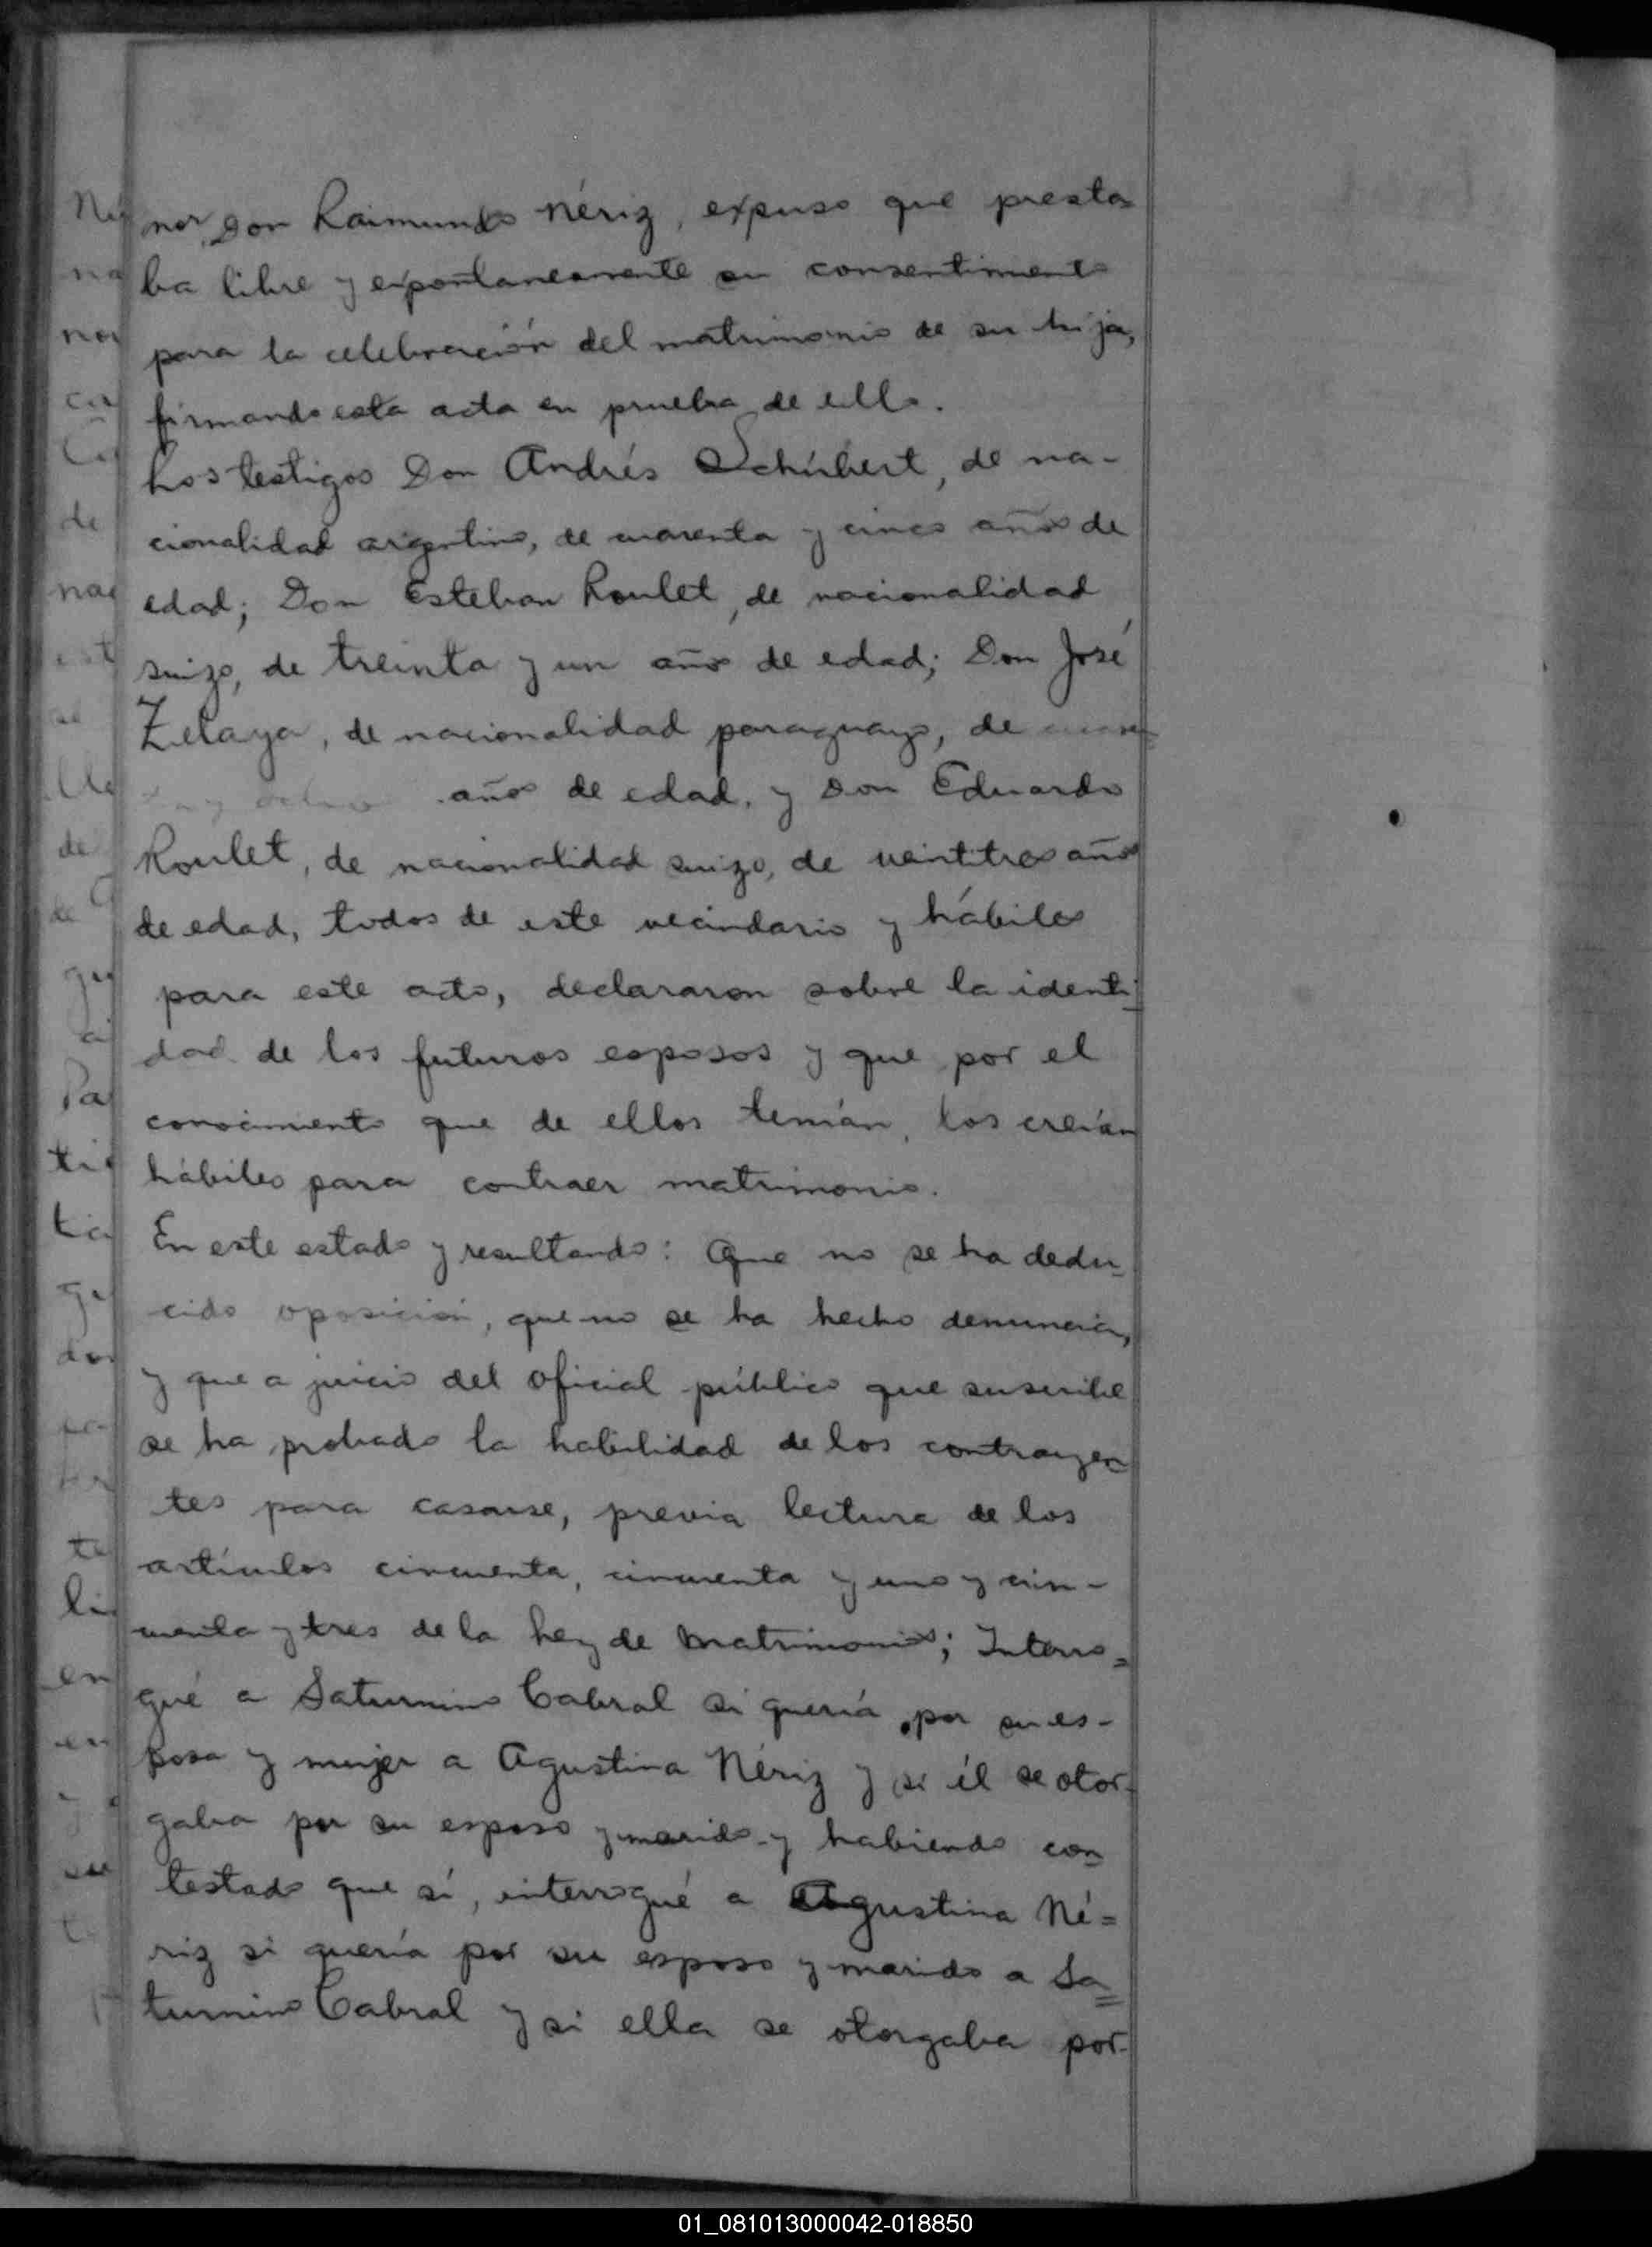 nor, Don Raimundo Nériz, expuso que presta=
ba libre y expontaneamente su consentimiento
para la celebración del matrimonio de su hija,
firmando esta acta en prueba de ello.
Los testigos Don Andrés Schúbert, de na-
cionalidad argentino, de cuarenta y cinco años de
edad; Don Esteban Roulet, de nacionalidad
suizo, de treinta y un años de edad; Don José
Zelaya, de nacionalidad paraguayo, de cuaren=
ta y ocho años de edad, y Don Eduardo
Roulet, de nacionalidad suizo, de veintitres años
de edad, todos de este vecindario y hábiles
para este acto, declararon sobre la identi-
dad de los futuros esposos y que por el
conocimiento que de ellos tenían, los creían
hábiles para contraer matrimonio.
En este estado y resultando: Que no se ha dedu-
cido oposición, que no se ha hecho denuncia,
y que a juicio del oficial público que suscribe
se ha probado la habilidad de los contrayen
tes para casarse, previa lectura de los
artículos cincuenta, cincuenta y uno y cin-
cuenta y tres de la Ley de Matrimonio; Interro=
gué a Saturnino Cabral si quería por su es-
posa y mujer a Agustina Nériz y si él se otor-
gaba por su esposo y marido y habiendo con
testado que sí, interrogué a Agustina Né=
riz si quería por su esposo y marido a Sa=
turnino Cabral y si ella se otorgaba por-
01_081013000042-018850